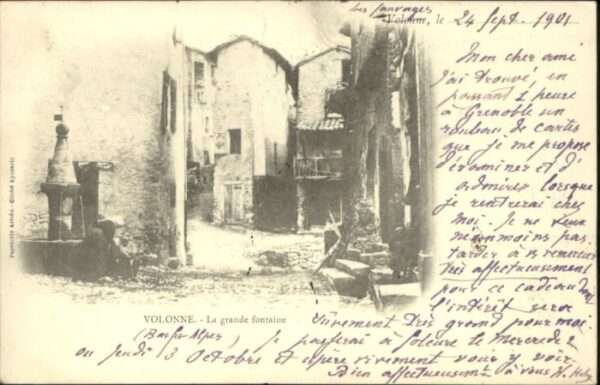 les sauvages
Volonne, le 24 Sept. 1901
Mon cher ami
j'ai trouvé, en
passant 1 heure
à Grenoble un
de cartes
que je me propose
d'examiner et d'
admirer lorsque
je rentrerai chez
moi. Je ne veux
néanmoins pas
tarder à vs remercier
très affectueusement
pour ce cadeau dont
l'intérêt sera
VOLONNE. - La grande fontaine
sûrement très grand pour moi.
(Basses Alpes) Je passerai à Soleure le Mercredi 2
ou Jeudi 3 Octobre et espère vivement vous y voir
Bien affectueusement à vous